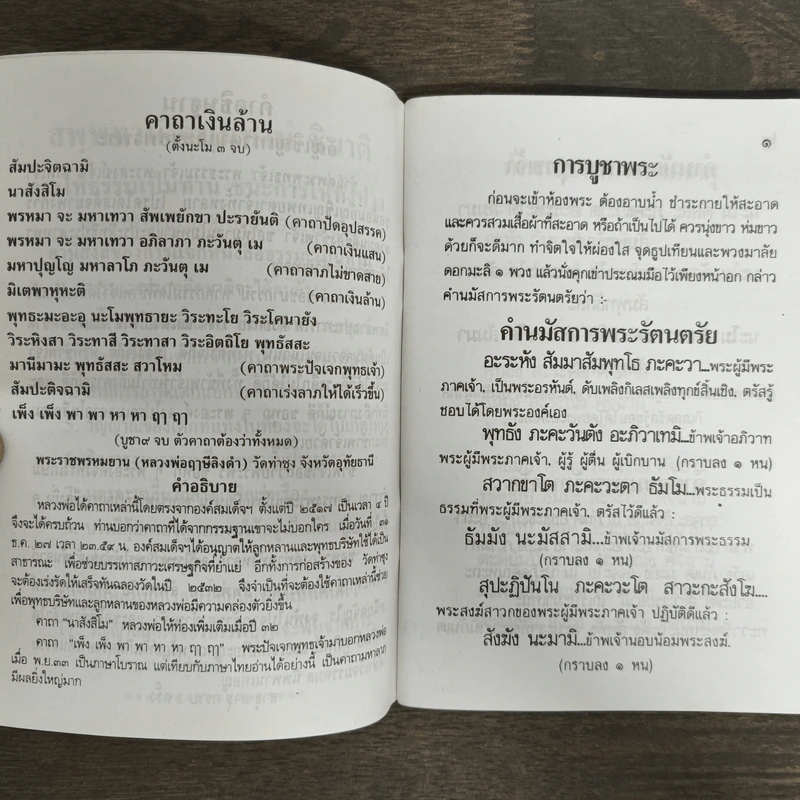 คาถาเงินล้าน
(ตั้งนะโม ๓ จบ)
สัมปะจิตฉามิ
นาสังสิโม
พรหมา จะ มหาเทวา สัพเพยักขา ปะรายันติ (คาถาปัดอุปสรรค)
พรหมา จะ มหาเทวา อภิลาภา ภะวันตุ เม (คาถาเงินแสน)
มหาปุญโญ มหาลาโภ ภะวันตุ เม (คาถาลาภไม่ขาดสาย)
มิเตพาหุหะติ (คาถาเงินล้าน)
พุทธะมะอะอุ นะโมพุทธายะ วิระทะโย วิระโคนายัง
วิระหิงสา วิระทาสี วิระทาสา วิระอิตถิโย พุทธัสสะ
มานีมามะ พุทธัสสะ สวาโหม (คาถาพระปัจเจกพุทธเจ้า)
สัมปะติจฉามิ (คาถาเร่งลาภให้ได้เร็วขึ้น)
เพ็ง เพ็ง พา พา หา หา ฤๅ ฤๅ
(บูชา๙ จบ ตัวคาถาต้องว่าทั้งหมด)
พระราชพรหมยาน (หลวงพ่อฤๅษีลิงดำ) วัดท่าซุง จังหวัดอุทัยธานี
คำอธิบาย
หลวงพ่อได้คาถาเหล่านี้โดยตรงจากองค์สมเด็จฯ ตั้งแต่ปี ๒๕๑๗ เป็นเวลา ๔ ปี
จึงจะได้ครบถ้วน ท่านบอกว่าคาถาที่ได้จากกรรมฐานเขาจะไม่บอกใคร เมื่อวันที่ ๓๑
ธ.ค. ๒๗ เวลา ๒๓.๕๙ น. องค์สมเด็จฯได้อนุญาตให้ลูกหลานและพุทธบริษัทใช้ได้เป็น
สาธารณะ เพื่อช่วยบรรเทาสภาวะเศรษฐกิจที่ย่ำแย่ อีกทั้งการก่อสร้างของ วัดท่าซุง
จะต้องเร่งรัดให้เสร็จทันฉลองวัดในปี ๒๕๓๒ จึงจำเป็นที่จะต้องใช้คาถาเหล่านี้ช่วย
เพื่อพุทธบริษัทและลูกหลานของหลวงพ่อมีความคล่องตัวยิ่งขึ้น
คาถา "นาสังสิโม" หลวงพ่อให้ท่องเพิ่มเติมเมื่อปี ๓๒
คาถา "เพ็ง เพ็ง พา พา หา หา ฤๅ ฤๅ" พระปัจเจกพุทธเจ้ามาบอกหลวงพ่อ
เมื่อ พ.ย.๓๓ เป็นภาษาโบราณ แต่เทียบกับภาษาไทยอ่านได้อย่างนี้ เป็นคาถามหาลาภ
มีผลยิ่งใหญ่มาก
๑
การบูชาพระ
ก่อนจะเข้าห้องพระ ต้องอาบน้ำ ชำระกายให้สะอาด
และควรสวมเสื้อผ้าที่สะอาด หรือถ้าเป็นไปได้ ควรนุ่งขาว ห่มขาว
ด้วยก็จะดีมาก ทำจิตใจให้ผ่องใส จุดธูปเทียนและพวงมาลัย
ดอกมะลิ ๑ พวง แล้วนั่งคุกเข่าประณมมือไว้เพียงหน้าอก กล่าว
คำนมัสการพระรัตนตรัยว่า :-
คำนมัสการพระรัตนตรัย
อะระหัง สัมมาสัมพุทโธ ภะคะวา...พระผู้มีพระ
ภาคเจ้า, เป็นพระอรหันต์, ดับเพลิงกิเลสเพลิงทุกข์สิ้นเชิง, ตรัสรู้
ชอบได้โดยพระองค์เอง
พุทธัง ภะคะวันตัง อะภิวาเทมิ...ข้าพเจ้าอภิวาท
พระผู้มีพระภาคเจ้า, ผู้รู้ ผู้ตื่น ผู้เบิกบาน (กราบลง ๑ หน)
สวากขาโต ภะคะวะตา ธัมโม...พระธรรมเป็น
ธรรมที่พระผู้มีพระภาคเจ้า, ตรัสไว้ดีแล้ว :
ธัมมัง นะมัสสามิ...ข้าพเจ้านมัสการพระธรรม
(กราบลง ๑ หน)
สุปะฏิปันโน ภะคะวะโต สาวะกะสังโฆ....
พระสงฆ์สาวกของพระผู้มีพระภาคเจ้า ปฏิบัติดีแล้ว :
สังฆัง นะมามิ...ข้าพเจ้านอบน้อมพระสงฆ์.
(กราบลง ๑ หน)